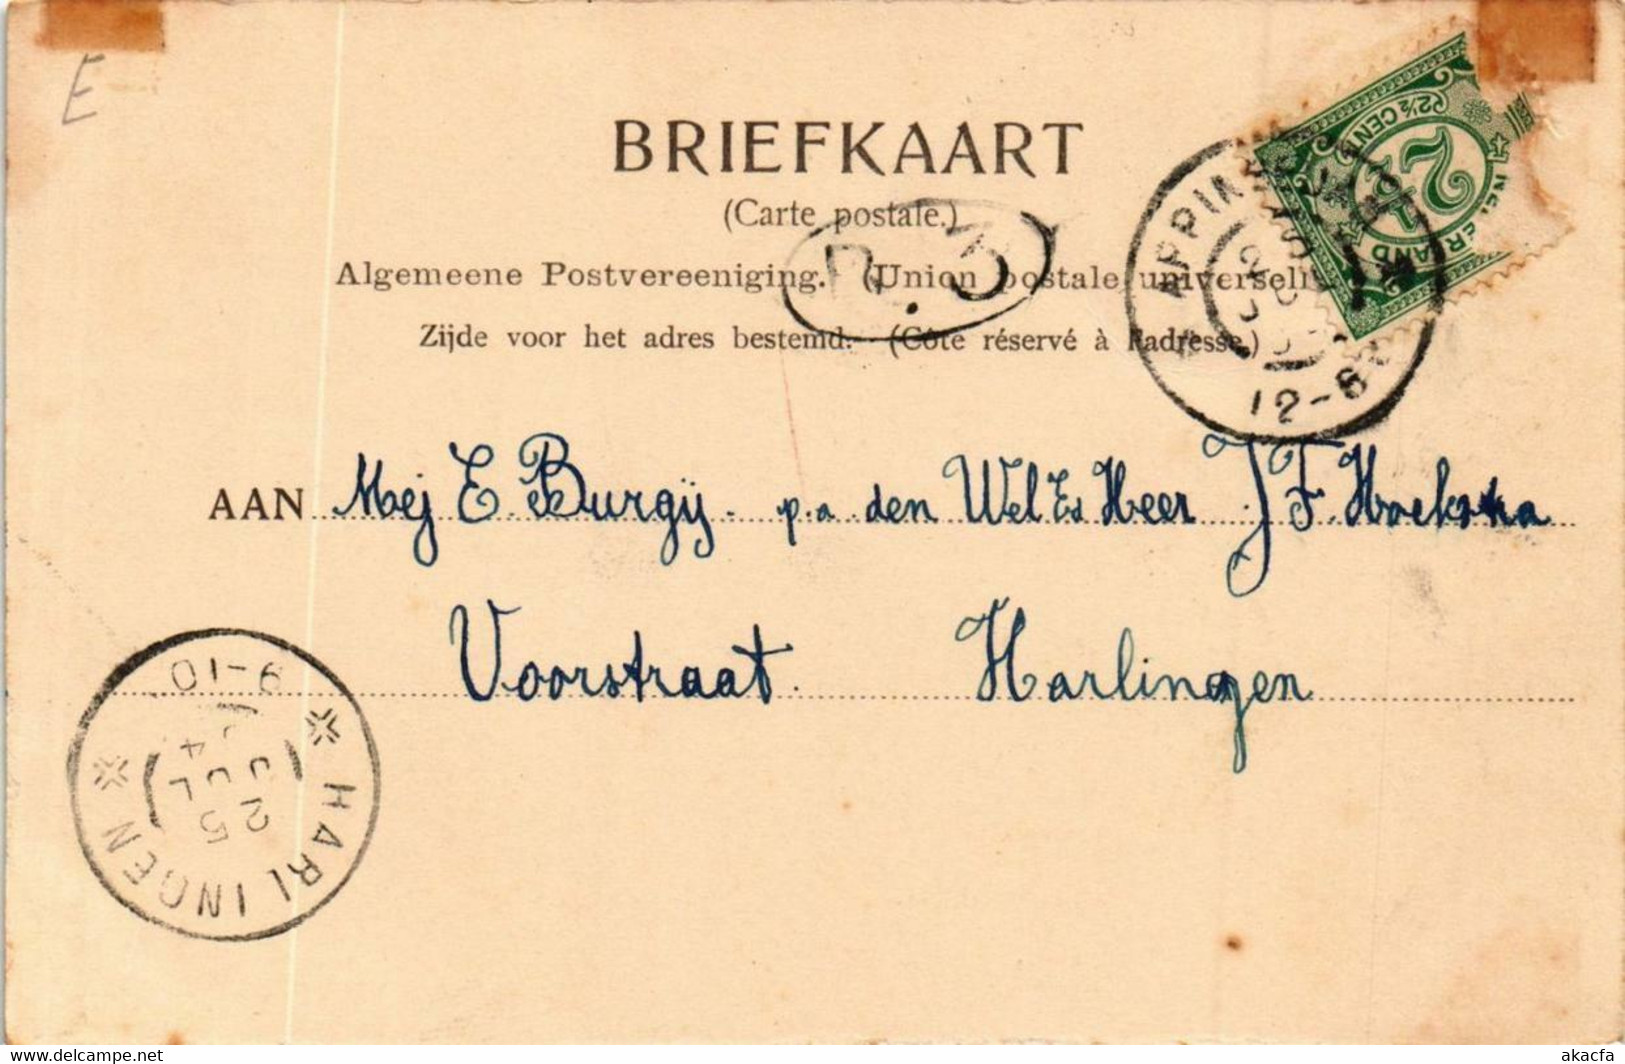 E
BRIEFKAART
(Carte postale.)
Algemeene Postvereeniging. (Union postale universelle
Zijde voor het adres bestemd. (Côté réservé à l'adresse.)
2½ CENT
NEDERLAND
12-6
AAN Mej E. Burgij. p.a. den Wel Ed Heer J F. Hoekstra
Voorstraat. Harlingen
HARLINGEN
25 JUL 04
9-10
akacfa